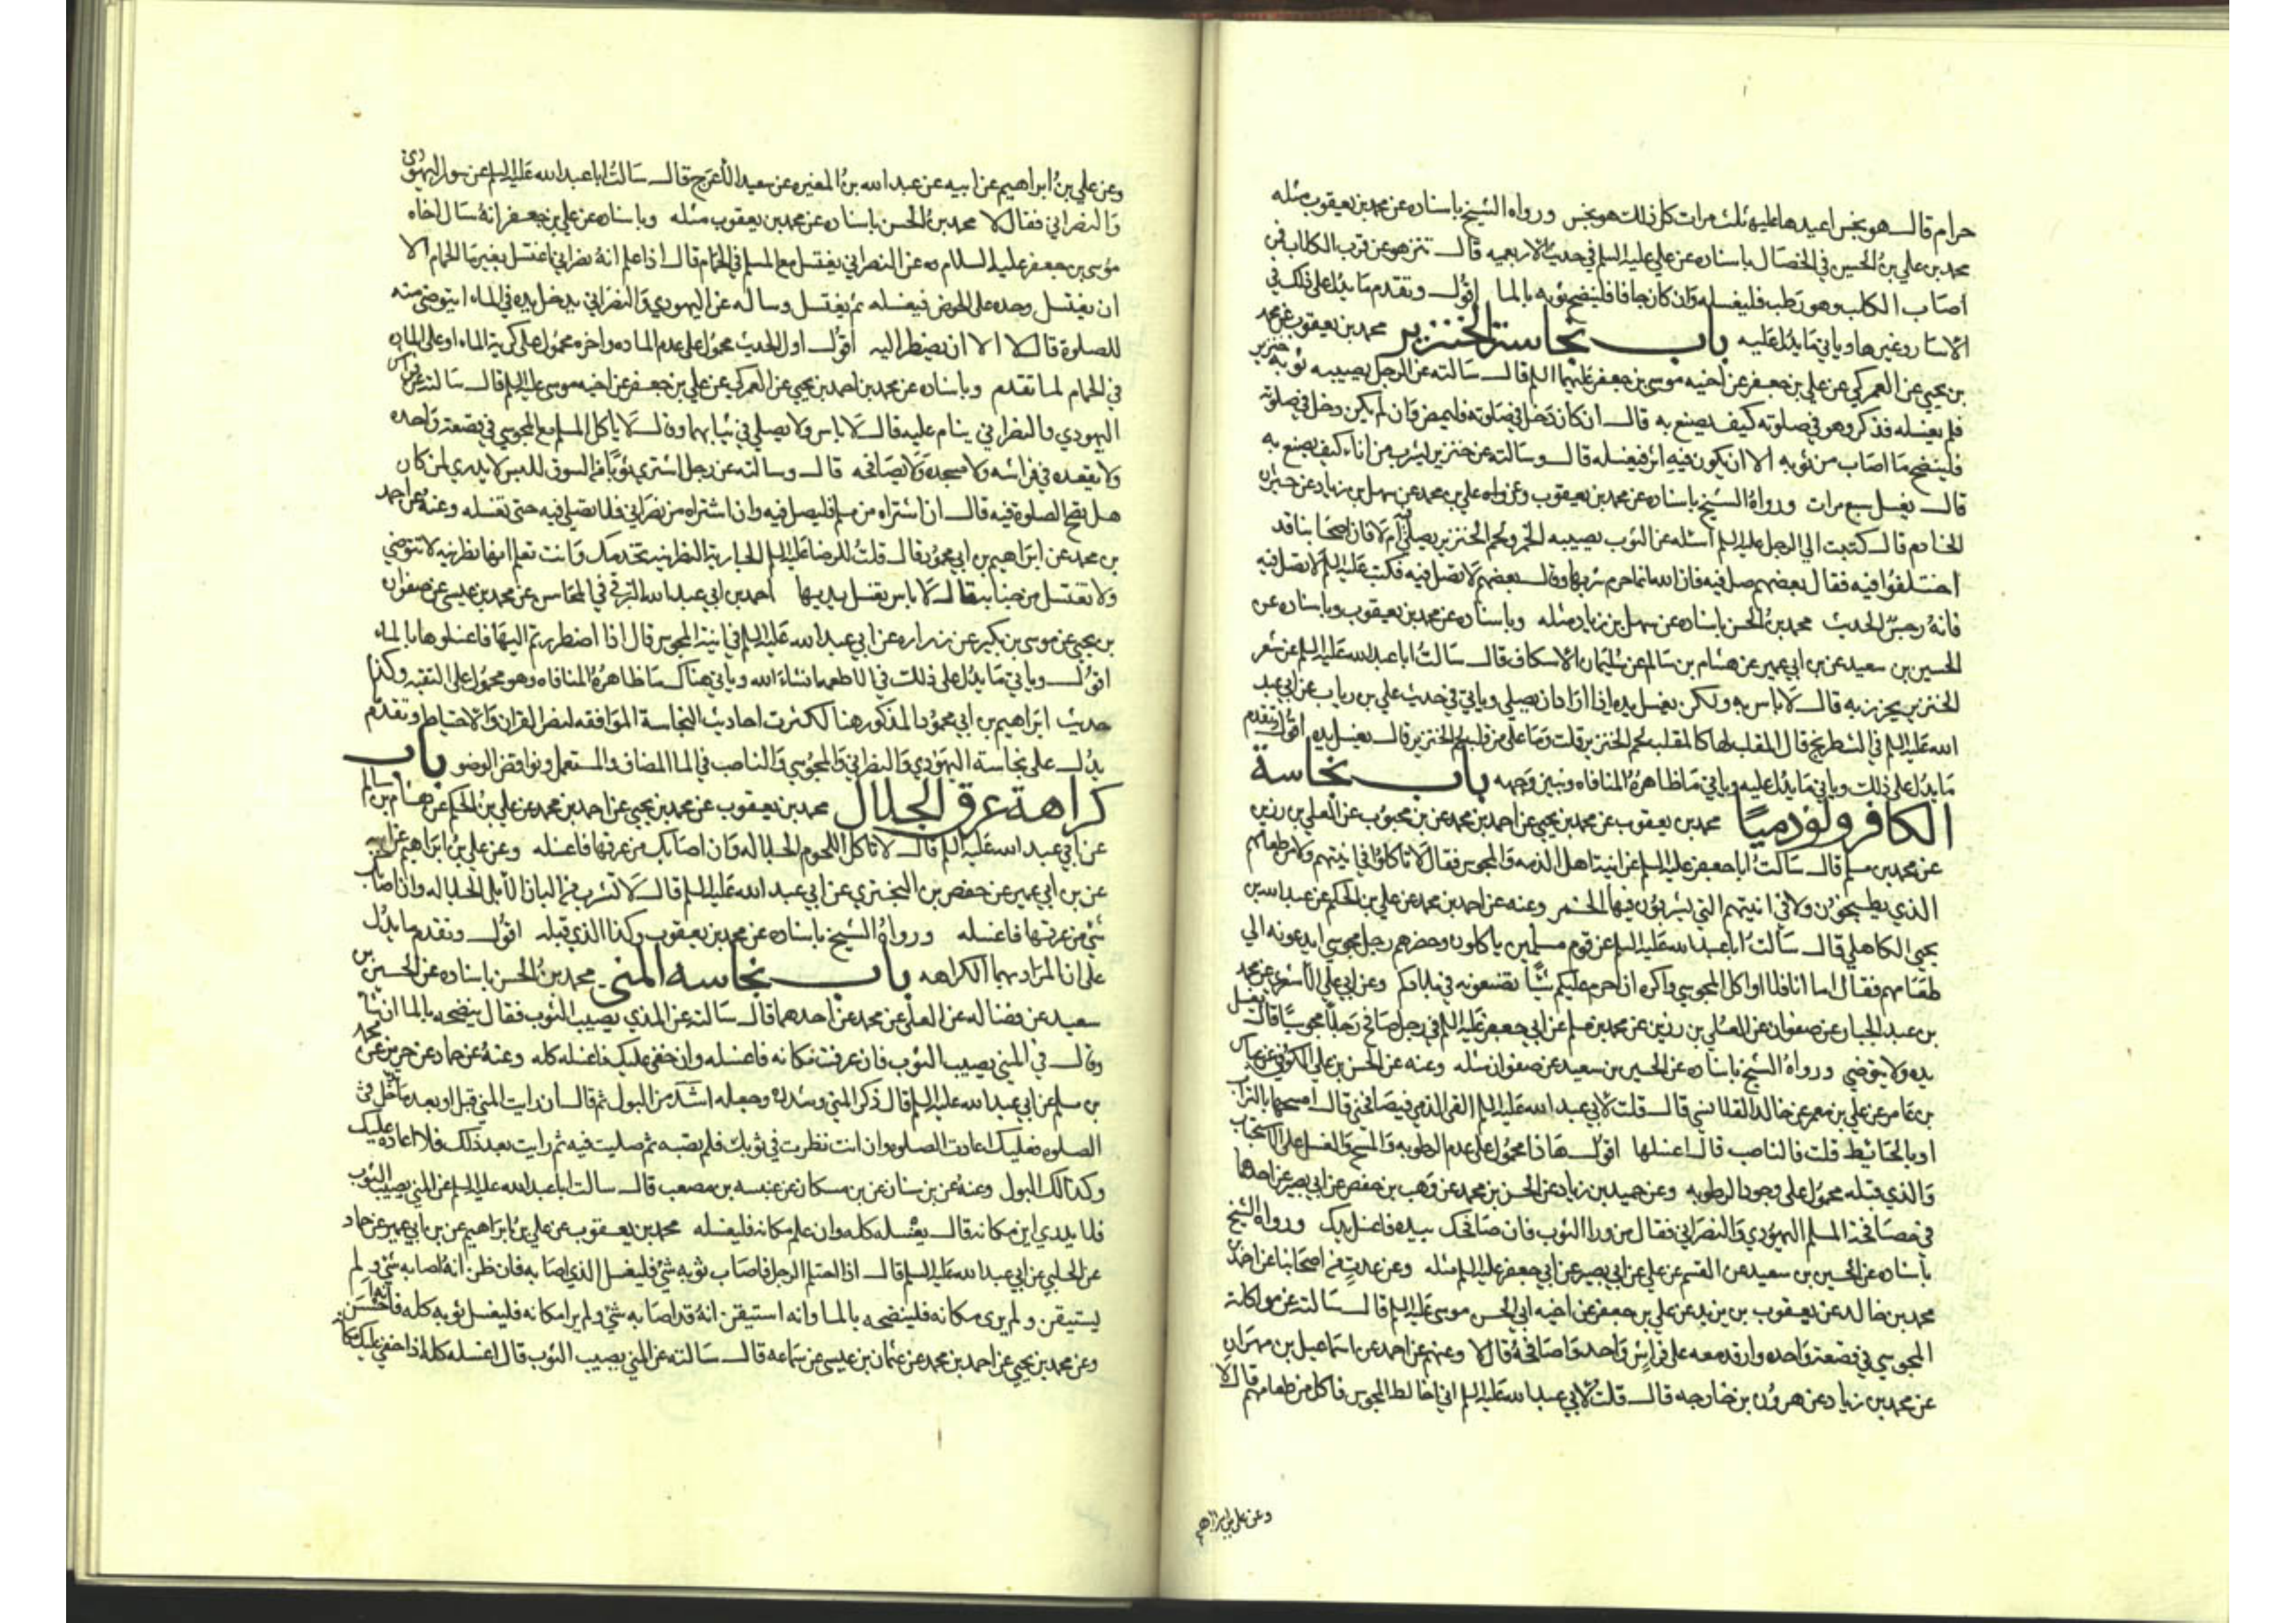 حرام قال هو نجس اعيدها عليه ثلث مرات كل ذلك هو نجس ورواه الشيخ باسناده عن محمد بن يعقوب مثله
محمد بن علي بن الحسين في الخصال باسناده عن علي عليه السلم في حديث الاربعميه قال تنزهوا عن قرب الكلاب فمن
اصاب الكلب وهو رطب فليغسله وان كان جافا فلينضح ثوبه بالما اقول وتقدم ما يدل على ذلك في
الاسار وغيرها وياتي ما يدل عليه باب نجاسة الخنزير محمد بن يعقوب عن محمد
بن يحيي عن العمركي عن علي بن جعفر عن اخيه موسى بن جعفر عليهما السلم قال سالته عن الرجل يصيب ثوبه خنزير
فلم يغسله فذكر وهو في صلوته كيف يصنع به قال ان كان دخل في صلوته فليمض وان لم يكن دخل في صلوته
فلينضح ما اصاب من ثوبه الا ان يكون فيه اثر فيغسله قال وسالته عن خنزير شرب من اناء كيف يصنع به
قال يغسل سبع مرات ورواه الشيخ باسناده عن محمد بن يعقوب وعن علي بن محمد عن سهل بن زياد عن خيران
الخادم قال كتبت الي الرجل عليه السلم اسئله عن الثوب يصيبه الخمر ولحم الخنزير يصلي فيه ام لا فان اصحابنا قد
اختلفوا فيه فقال بعضهم صل فيه فان الله انما حرم شربها وقال بعضهم لا تصل فيه فكتب عليه السلم لا تصل فيه
فانه رجس الحديث محمد بن الحسن باسناده عن سهل بن زياد مثله وباسناده عن محمد بن يعقوب وباسناده عن
الحسين بن سعيد عن بن ابي عمير عن هشام بن سالم عن سليمان الاسكاف قال سالت ابا عبد الله عليه السلم عن شعر
الخنزير يخرز به قال لا باس به ولكن يغسل يده اذا اراد ان يصلي وياتي في حديث علي بن رياب عن ابي عبد
الله عليه السلم في الشطرنج قال المقلب لها كالمقلب لحم الخنزير قلت وما علي من قلب لحم الخنزير قال يغسل يده اقول وتقدم
ما يدل على ذلك وياتي ما يدل عليه وياتي ما ظاهره المنافاه ونبين وجهه باب نجاسة
الكافر ولو ذميا محمد بن يعقوب عن محمد بن يحيي عن احمد بن محمد عن بن محبوب عن العلي بن رزين
عن محمد بن مسلم قال سالت ابا جعفر عليه السلم عن انية اهل الذمه والمجوس فقال لا تاكلوا في انيتهم ولا من طعامهم
الذي يطبخون ولا في انيتهم التي يشربون فيها الخمر وعنه عن احمد بن محمد عن علي بن الحكم عن عبد الله بن
يحيي الكاهلي قال سالت ابا عبد الله عليه السلم عن قوم مسلمين ياكلون وحضرهم رجل مجوسي ايدعونه الي
طعامهم فقال اما انا فلا اواكل المجوسي واكره ان احرم عليكم شيئا تصنعونه في بلادكم وعن ابي علي الاشعري عن محمد
بن عبد الجبار عن صفوان عن العلي بن رزين عن محمد بن مسلم عن ابي جعفر عليه السلم في رجل صافح رجلا مجوسيا قال يغسل
يده ولا يتوضي ورواه الشيخ باسناده عن الحسين بن سعيد عن صفوان مثله وعنه عن الحسن بن علي الكوفي عن عباس
بن عامر عن علي بن معمر عن خالد القلانسي قال قلت لابي عبد الله عليه السلم القي الذمي فيصافحني قال امسحها بالتراب
او بالحائيط قلت فالناصب قال اغسلها اقول هاذا محمول على عدم الرطوبه والمسح والغسل على الاستحباب
والذي قبله محمول على وجود الرطوبه وعن حميد بن زياد عن الحسن بن محمد عن وهب بن حفص عن ابي بصير عن احدهما
في مصافحة المسلم اليهودي والنصراني فقال من ورا الثوب فان صافحك بيده فاغسل يدك ورواه الشيخ
باسناده عن الحسين بن سعيد عن القسم عن علي عن ابي بصير عن ابي جعفر عليه السلم مثله وعن عدة من اصحابنا عن احمد بن
محمد بن خالد عن يعقوب بن يزيد عن علي بن جعفر عن اخيه ابي الحسن موسى عليه السلم قال سالته عن مواكلة
المجوسي في قصعة واحده وارقد معه على فراش واحد واصافحه قال لا وعنهم عن احمد عن اسماعيل بن مهران
عن محمد بن زياد عن هرون بن خارجه قال قلت لابي عبد الله عليه السلم اني اخالط المجوس فاكل من طعامهم قال لا
وعن علي بن ابراهيم
وعن علي بن ابراهيم عن ابيه عن عبد الله بن المغيره عن سعيد الاعرج قال سالت ابا عبد الله عليه السلم عن سور اليهودي
والنصراني فقال لا محمد بن الحسن باسناده عن محمد بن يعقوب مثله وباسناده عن علي بن جعفر انه سال اخاه
موسى بن جعفر عليه السلام عن النصراني يغتسل مع المسلم في الحمام قال اذا علم انه نصراني اغتسل بغير ما الحمام الا
ان يغتسل وحده على الحوض فيغسله ثم يغتسل وساله عن اليهودي والنصراني يدخل يده في الماء ايتوضى منه
للصلوة قال لا الا ان يضطر اليه اقول اول الحديث محمول على عدم الماده واخره محمول على كرية الماء او على الماده
في الحمام لما تقدم وباسناده عن محمد بن احمد بن يحيي عن العمركي عن علي بن جعفر عن اخيه موسى عليه السلم قال سالته عن فراش
اليهودي والنصراني ينام عليه قال لا باس ولا يصلي في ثيابهما وقال لا ياكل المسلم مع المجوسي في قصعة واحده
ولا يقعده في فراشه ولا مسجده ولا يصافحه قال وسالته عن رجل اشتري ثوبا من السوق للبس لا يدري لمن كان
هل يصح الصلوة فيه قال ان اشتراه من مسلم فليصل فيه وان اشتراه من نصراني فلا يصلي فيه حتي يغسله وعنه عن احمد
بن محمد عن ابراهيم بن ابي محمود قال قلت للرضا عليه السلم الجارية النصرانيه تخدمك وانت تعلم انها نصرنيه لا تتوضي
ولا تغتسل من جنابه قال لا باس تغسل يديها احمد بن ابي عبد الله البرقي في المحاسن عن محمد بن عيسى عن صفوان
بن يحيي عن موسى بن بكير عن زراره عن ابي عبد الله عليه السلم في انية المجوس قال اذا اضطررتم اليها فاغسلوها بالماء
اقول وياتي ما يدل على ذلك في الاطعمه انشاء الله وياتي هناك ما ظاهره المنافاه وهو محمول على التقيه وكذا
حديث ابراهيم بن ابي محمود المذكور هنا لكثرت احاديث النجاسة الموافقه لنص القران والاحتياط وتقدم
يدل على نجاسة اليهودي والنصراني والمجوسي والناصب في الما المضاف والمستعمل ونواقض الوضو باب
كراهة عرق الجلال محمد بن يعقوب عن محمد بن يحيي عن احمد بن محمد عن علي بن الحكم عن هشام بن سالم
عن ابي عبد الله عليه السلم قال لا تاكل اللحوم الجلاله وان اصابك من عرقها فاغسله وعن علي بن ابراهيم عن ابيه
عن بن ابي عمير عن حفص بن البختري عن ابي عبد الله عليه السلم قال لا تشرب من البان الابل الجلاله وان اصابك
شئ من عرقها فاغسله ورواه الشيخ باسناده عن محمد بن يعقوب وكذا الذي قبله اقول وتقدم ما يدل
على ان المراد بهما الكراهه باب نجاسه المني محمد بن الحسن باسناده عن الحسين بن
سعيد عن فضاله عن العلي عن محمد عن احدهما قال سالته عن المذي يصيب الثوب فقال ينضحه بالما ان شا
وقال في المني يصيب الثوب فان عرفت مكانه فاغسله وان خفي عليك فاغسله كله وعنه عن حماد عن حريز عن محمد
بن مسلم عن ابي عبد الله عليه السلم قال ذكر المني وشدده وجعله اشد من البول ثم قال ان رايت المني قبل او بعد ما تدخل في
الصلوه فعليك اعادت الصلوه وان انت نظرت في ثوبك فلم تصبه ثم صليت فيه ثم رايت بعد ذلك فلا اعاده عليك
وكذالك البول وعنه عن بن سنان عن بن مسكان عن عنبسه بن مصعب قال سالت ابا عبد الله عليه السلم عن المني يصيب الثوب
فلا يدري اين مكانه قال يغسله كله وان علم مكانه فليغسله محمد بن يعقوب عن علي بن ابراهيم عن بن ابي عمير عن حماد
عن الحلبي عن ابي عبد الله عليه السلم قال اذا احتلم الرجل فاصاب ثوبه شئ فليغسل الذي اصابه فان ظن انه اصابه شئ ولم
يستيقن ولم يرى مكانه فلينضحه بالما وانه استيقن انه قد اصابه شئ ولم ير مكانه فليغسل ثوبه كله فانه احسن
وعن محمد بن يحيي عن احمد بن محمد عن عثمان بن عيسى عن سماعه قال سالته عن المني يصيب الثوب قال اغسله كله اذا خفي عليك مكانه